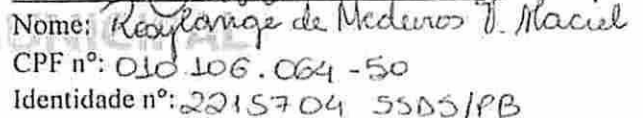 Nome: Keoylange de Medeiros V. Maciel
CPF nº: 010.106.064-50
Identidade nº: 2215704 SSDS/PB